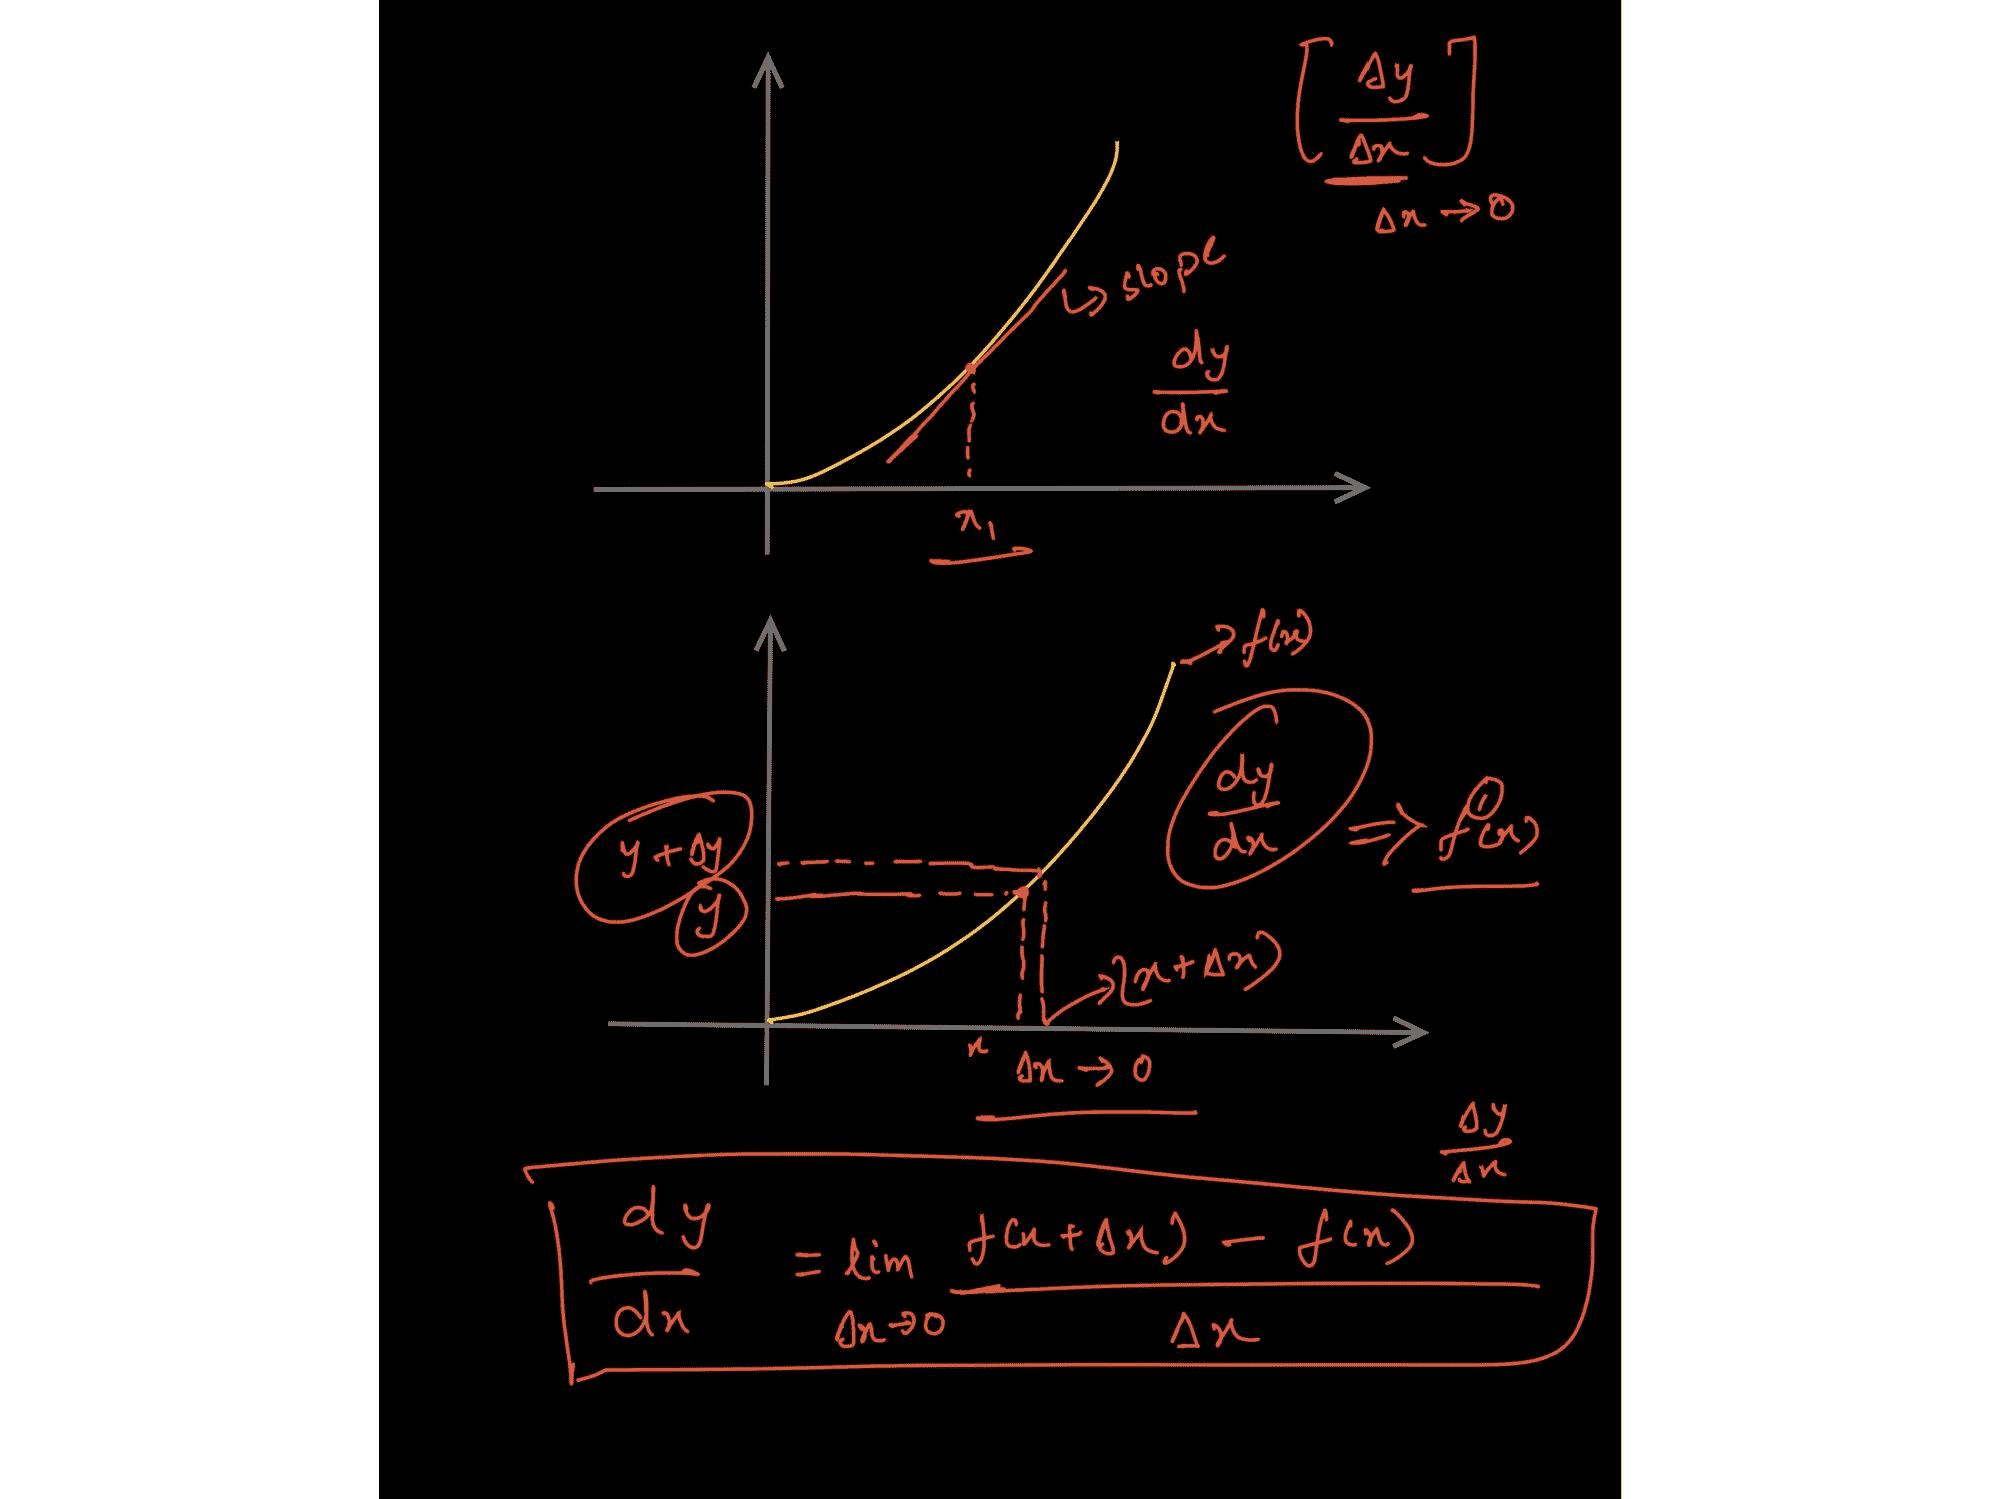 [ Δy / Δx ]
Δx → 0
↳ slope
dy / dx
x₁
→ f(x)
dy / dx ⇒ f'(x)
y + Δy
y
→ (x + Δx)
x
Δx → 0
Δy / Δx
dy / dx = lim Δx→0 f(x + Δx) − f(x) / Δx